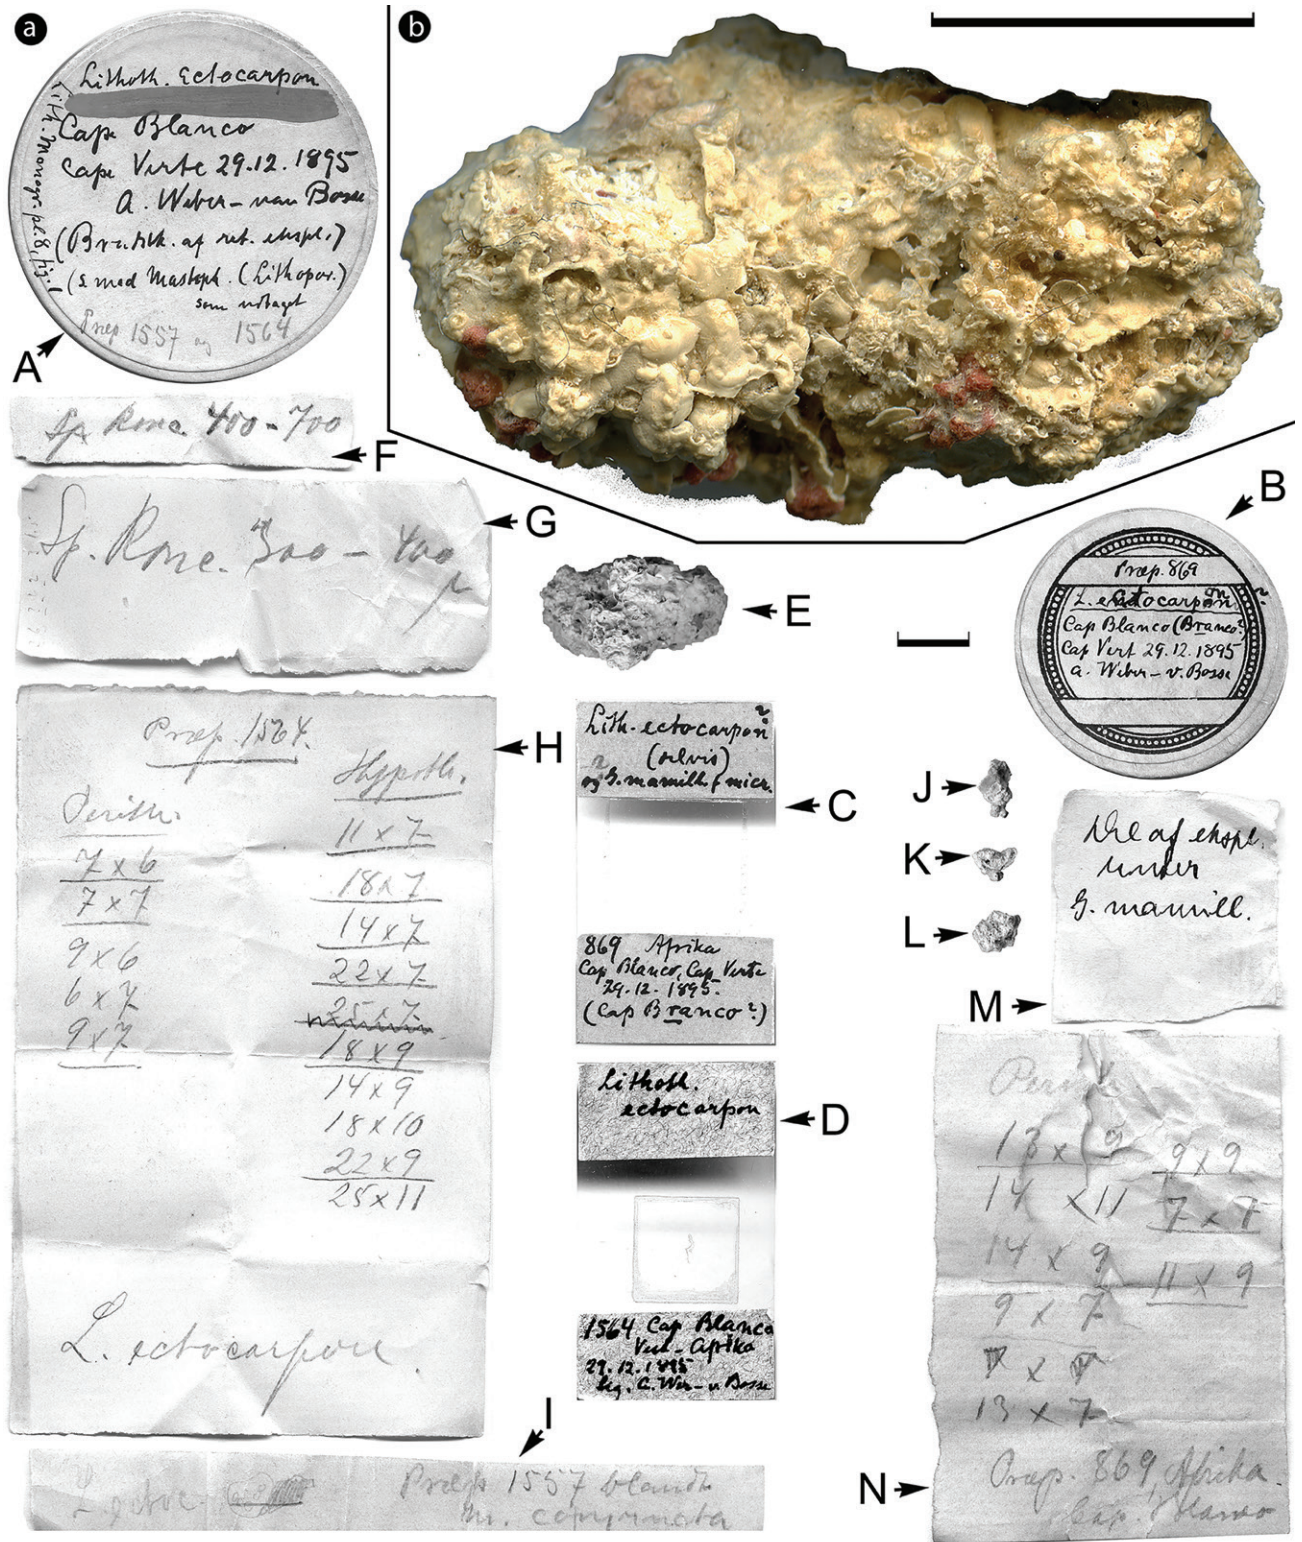 a
b
Lithoth. ectocarpon
Cape Blanco
Cape Verte 29.12.1895
A. Weber-van Bosse
(Bruddstk. af ret. ekspl.)
(s med Mastoph. (Lithopor.)
som udtaget
Præp 1557 og 1564
Lith. Monogr. pl. 8, fig. 1
A
Sp Konc. 400-700
F
Sp. Konc. 300-400 µ
G
B
Præp. 869
L. ectocarpon ?
Cap Blanco (Branco?)
Cap Vert 29.12.1895
A. Weber-v. Bosse
E
Præp. 1564.
Perith.
7 x 6
7 x 7
9 x 6
6 x 7
9 x 7
Hypoth.
11 x 7
18 x 7
14 x 7
22 x 7
25 x 7
18 x 9
14 x 9
18 x 10
22 x 9
25 x 11
L. ectocarpon.
H
Lith. ectocarpon ?
og G. mamill. f micr.
C
869 Afrika
Cap Blanco, Cap Verte
29.12.1895.
(Cap Branco?)
Lithoth.
ectocarpon
D
1564 Cap Blanco
Vest-Afrika
29.12.1895
leg. C. Wer-v Bosse
J
K
L
Del af ekspl.
under
G. mamill.
M
13 x 9
14 x 11
14 x 9
9 x 7
7 x 7
13 x 7
9 x 9
7 x 7
11 x 9
Præp. 869, Afrika.
Cap. Blanco
N
I
Præp 1557 blandt